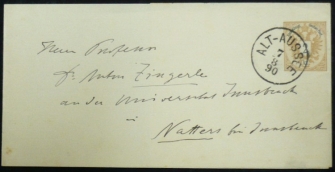 Herrn Professor
Dr. Anton Zingerle
an der Universität Innsbruck
in
Natters bei Innsbruck
ALT-AUSSEE
7
90